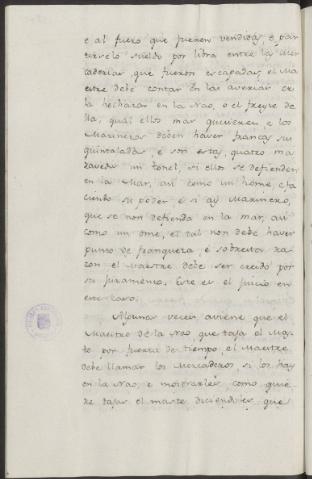 e al fuero que fueren vendidas, e par
tirselo sueldo por libra entre las Mer
caderias, que fueron escapadas, el Ma
estre debe contar en las averias en
la hechazon en la Nao, o el freyte de
lla, qual ellos mas quisieren e los
Marineros deben haver francas sus
quintaladas e son estas, quatro ma
ravedis un tonel, si ellos se defienden
en la Mar, asi como un home, efa
ciendo su poder e si ay Marinero,
que se non defienda en la mar, asi
como un ome, el tal non debe haver
punto de franqueza, e sobre ista ra
zon el Maestre debe ser creido por
su juramento. Este es el juicio en
este caso.
Algunas veces aviene que el
Maestre de la Nao que taja el Mas
te por fuerza de tiempo, el Maestre
debe llamar los Mercaderos si los hay
en la Nao, e mostrarles, como quie
re tajar el maste diciendoles que